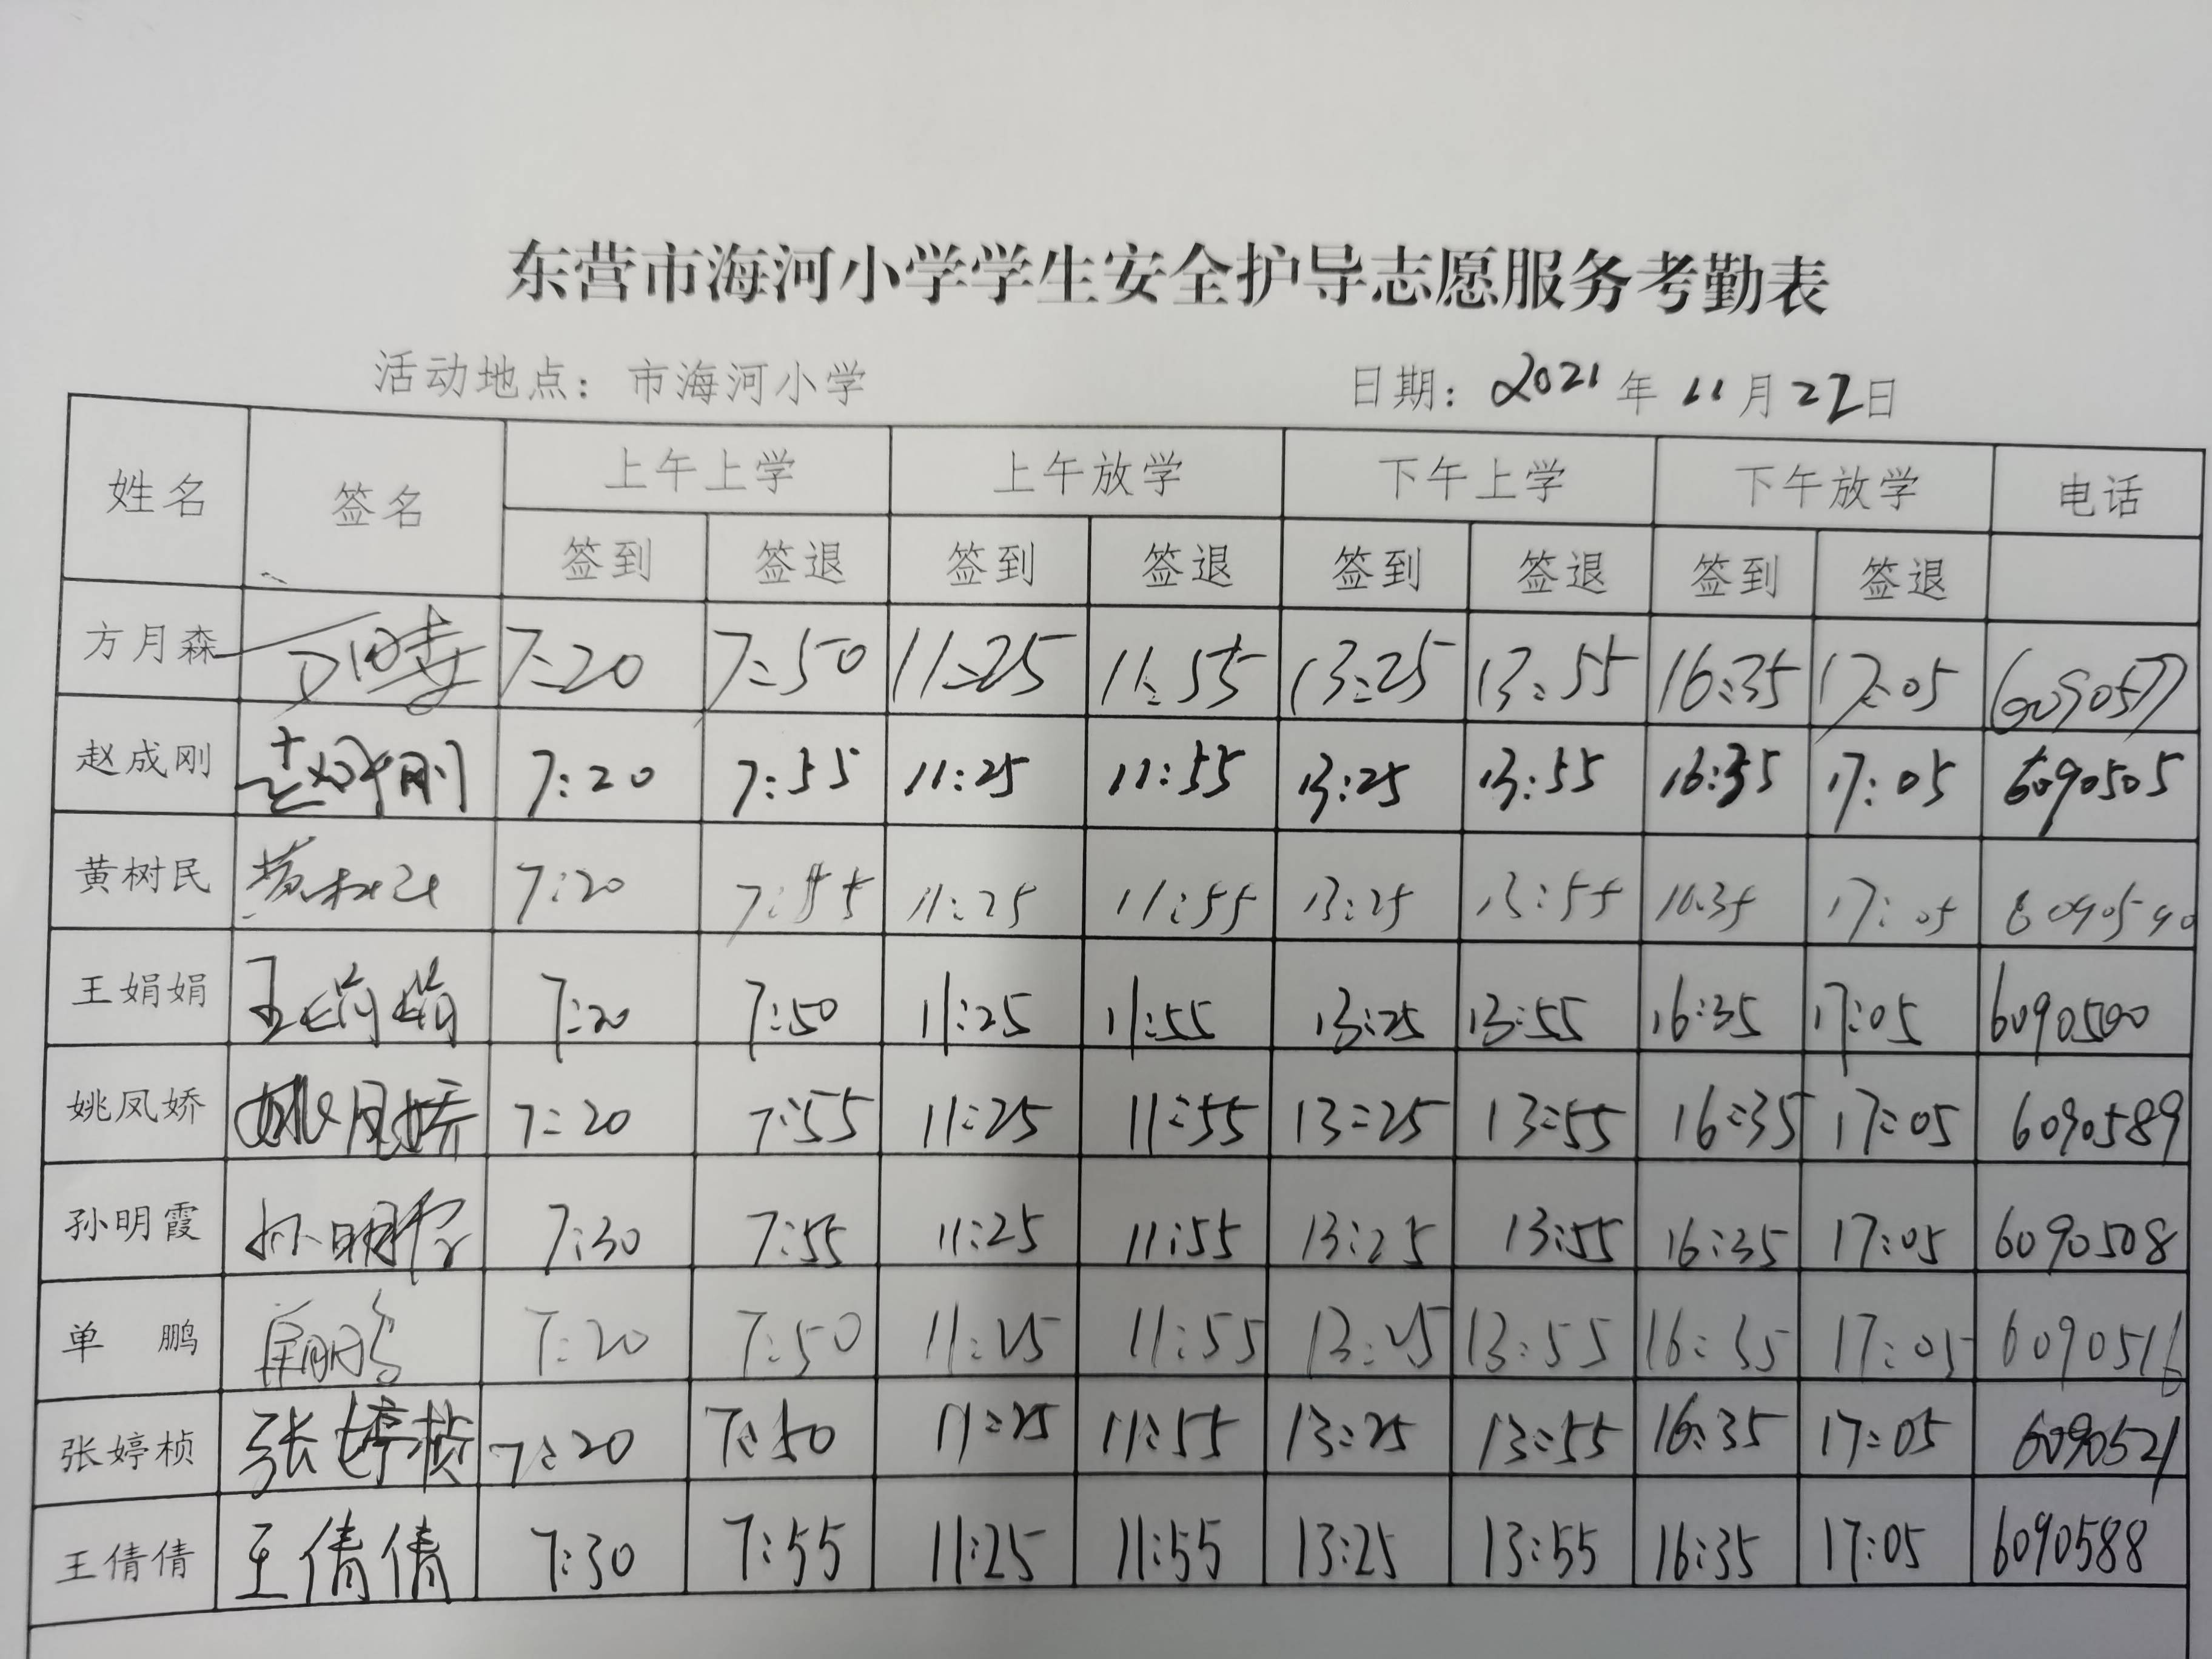 东营市海河小学学生安全护导志愿服务考勤表
活动地点：市海河小学 日期：2021年11月22日
姓名 签名 上午上学 上午放学 下午上学 下午放学 电话
签到 签退 签到 签退 签到 签退 签到 签退
方月森 7:20 7:50 11:25 11:55 13:25 13:55 16:35 17:05
赵成刚 赵成刚 7:20 7:55 11:25 11:55 13:25 13:55 16:35 17:05 6090505
黄树民 黄树民 7:20 7:55 11:25 11:55 13:25 13:55 16:35 17:05 6090590
王娟娟 王娟娟 7:20 7:50 11:25 11:55 13:25 13:55 16:35 17:05 6090500
姚凤娇 姚凤娇 7:20 7:55 11:25 11:55 13:25 13:55 16:35 17:05 6090589
孙明霞 孙明霞 7:30 7:55 11:25 11:55 13:25 13:55 16:35 17:05 6090508
单 鹏 单鹏 7:20 7:50 11:25 11:55 13:25 13:55 16:35 17:05 6090516
张婷桢 张婷桢 7:20 7:50 11:25 11:55 13:25 13:55 16:35 17:05 6090521
王倩倩 王倩倩 7:30 7:55 11:25 11:55 13:25 13:55 16:35 17:05 6090588